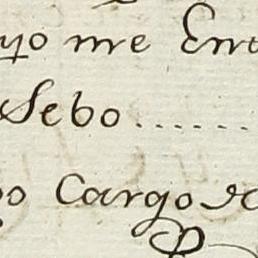 yo me Ent
Sebo.......
o Cargo de